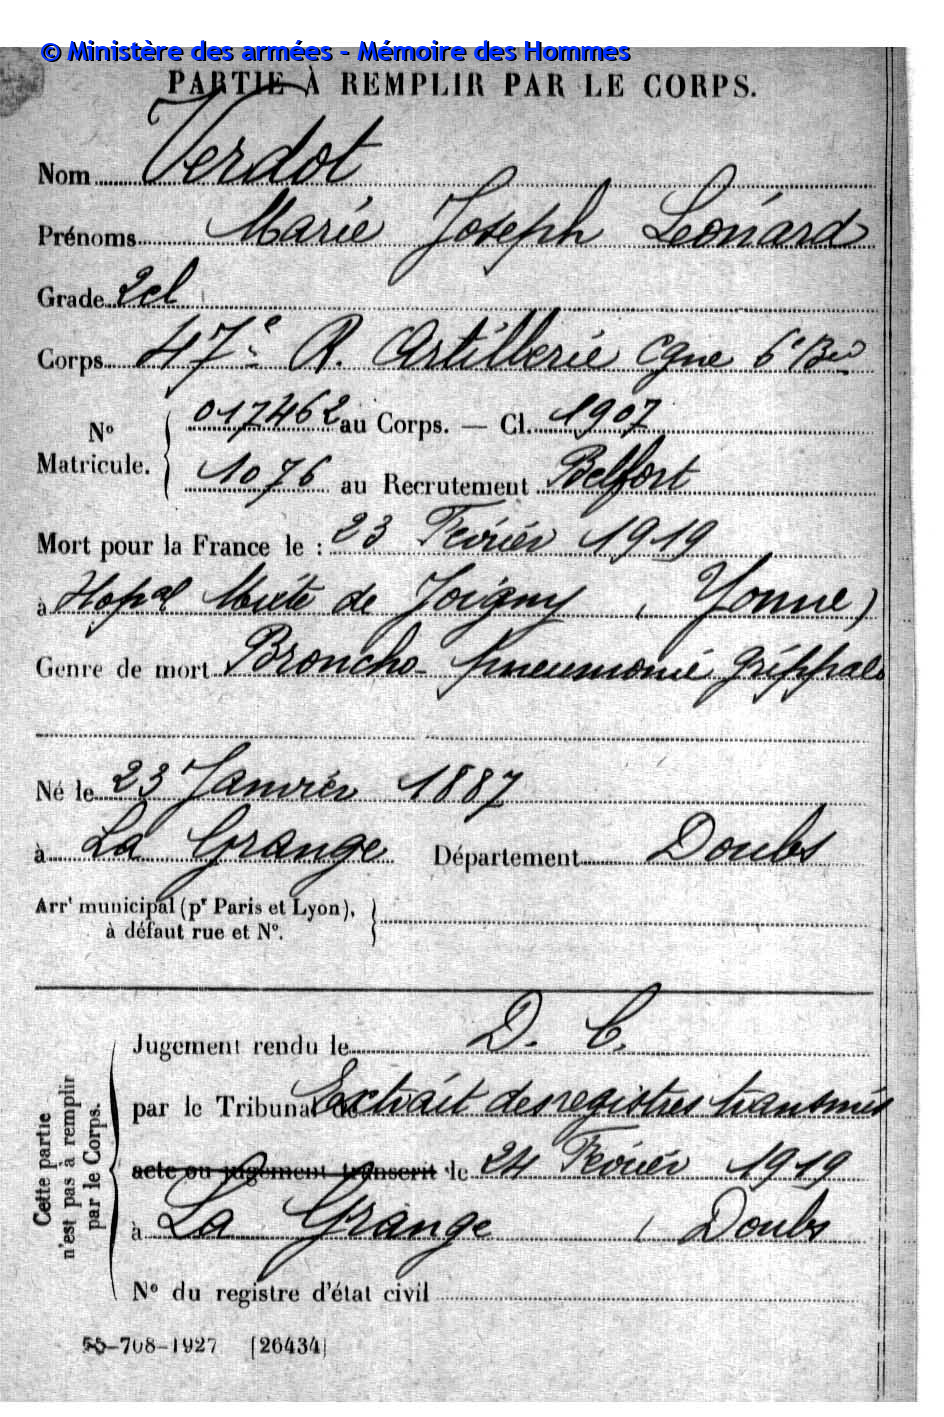 © Ministère des armées - Mémoire des Hommes
PARTIE À REMPLIR PAR LE CORPS.
Nom Verdot
Prénoms Marie Joseph Léonard
Grade 2cl
Corps 47e R. Artillerie Cgne 6e Bie
No 017462 au Corps. — Cl. 1907
Matricule. 1076 au Recrutement Belfort
Mort pour la France le : 23 Février 1919
à Hopal Mixte de Joigny (Yonne)
Genre de mort Broncho-pneumonie grippale
Né le 23 Janvier 1887
à La Grange Département Doubs
Arrt municipal (pr Paris et Lyon),
à défaut rue et No.
Cette partie
n'est pas à remplir
par le Corps.
Jugement rendu le D. C.
par le Tribunal de Extrait des registres transmis
acte ou jugement transcrit le 24 Février 1919
à La Grange (Doubs
No du registre d'état civil
55-708-1927 [26434]